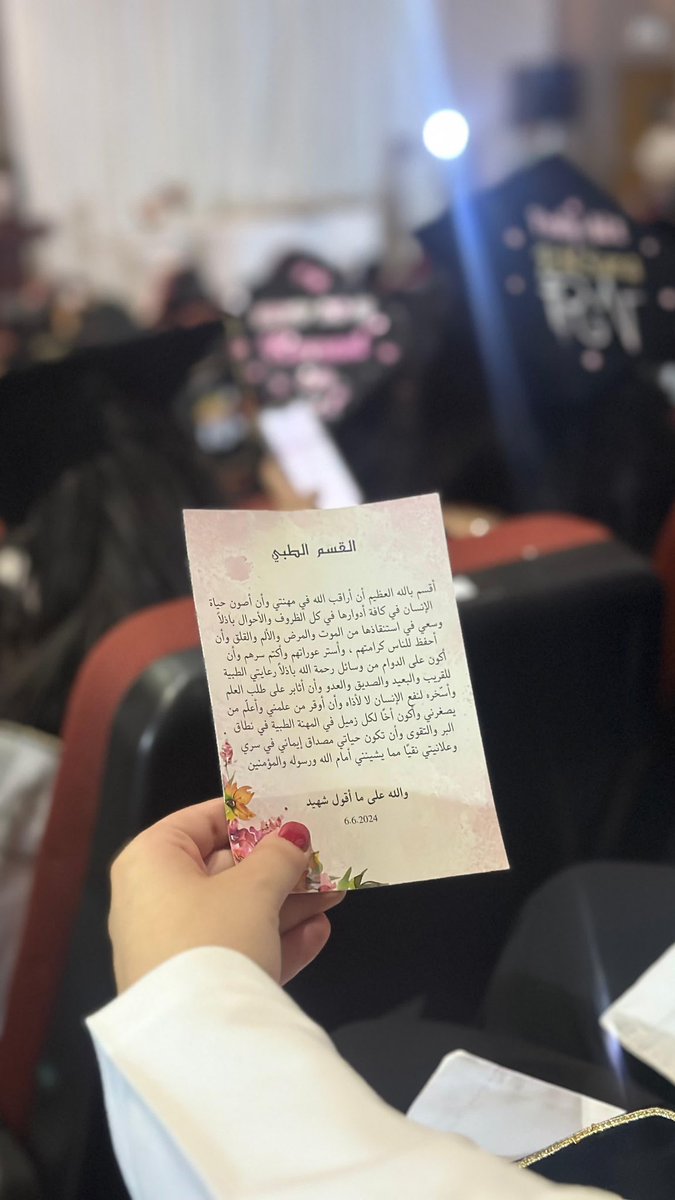 القسم الطبي
أقسم بالله العظيم أن أراقب الله في مهنتي وأن أصون حياة
الإنسان في كافة أدوارها في كل الظروف والأحوال باذلاً
وسعي في استنقاذها من الموت والمرض والألم والقلق وأن
أحفظ للناس كرامتهم ، وأستر عوراتهم وأكتم سرهم وأن
أكون على الدوام من وسائل رحمة الله باذلاً رعايتي الطبية
للقريب والبعيد والصديق والعدو وأن أثابر على طلب العلم
وأسخّره لنفع الإنسان لا لأذاه وأن أوقر من علمني وأعلّم من
يصغرني وأكون أخًا لكل زميل في المهنة الطبية في نطاق
البر والتقوى وأن تكون حياتي مصداق إيماني في سري
وعلانيتي نقيًا مما يشينني أمام الله ورسوله والمؤمنين
والله على ما أقول شهيد
6.6.2024
RN